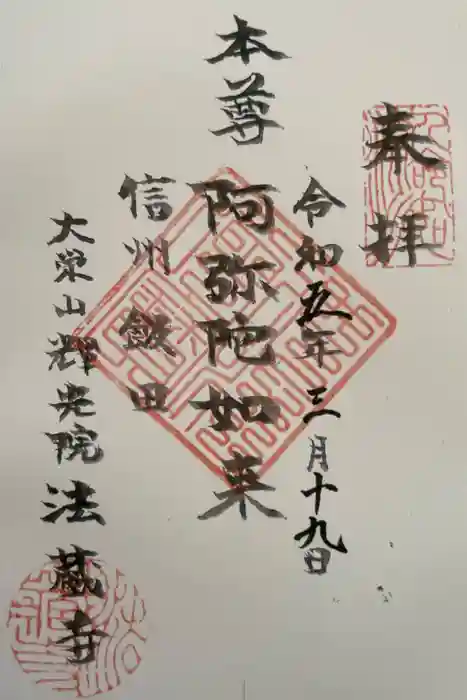 奉拝
令和五年三月十九日
本尊
阿弥陀如来
信州 飯田
大栄山輝光院法蔵寺